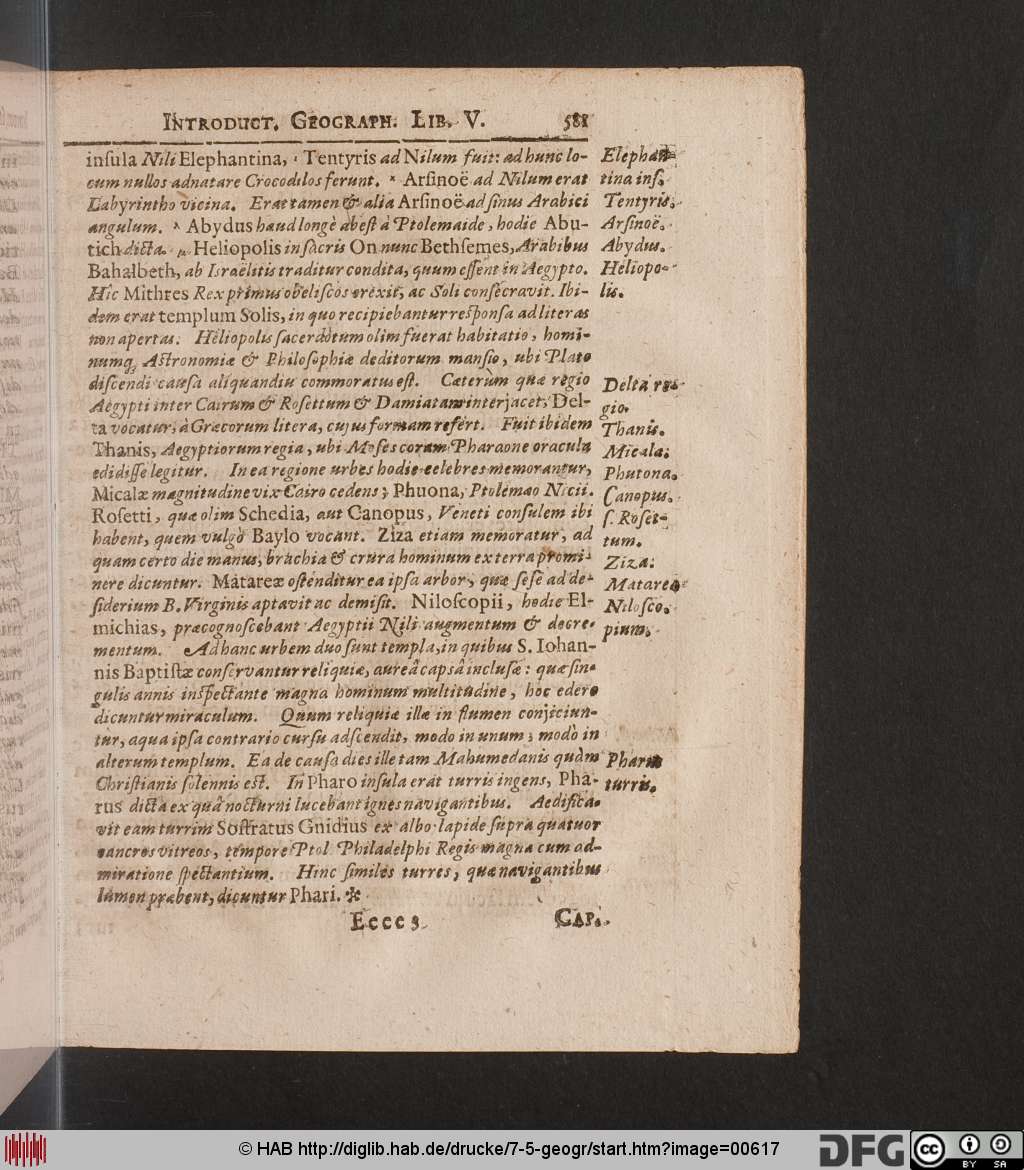 INTRODUCT. GEOGRAPH. LIB. V. 581
insula Nili Elephantina, Tentyris ad Nilum fuit: ad hunc lo-
cum nullos adnatare Crocodilos ferunt. * Arsinoë ad Nilum erat
Labyrintho vicina. Erat tamen & alia Arsinoë ad sinus Arabici
angulum. Abydus haud longè abest à Ptolemaide, hodie Abu-
tich dicta. Heliopolis in sacris On nunc Bethsemes, Arabibus
Bahalbeth, ab Israëlitis traditur condita, quum essent in Aegypto.
Hîc Mithres Rex primus obeliscos erexit, ac Soli consecravit. Ibi-
dem erat templum Solis, in quo recipiebantur responsa ad literas
non apertas. Heliopolis sacerdotum olim fuerat habitatio, homi-
numq; Astronomiæ & Philosophiæ deditorum mansio, ubi Plato
discendi causa aliquandiu commoratus est. Cæterùm quæ regio
Aegypti inter Cairum & Rosettum & Damiatam interjacet, Del-
ta vocatur, à Græcorum litera, cujus formam refert. Fuit ibidem
Thanis, Aegyptiorum regia, ubi Moses coram Pharaone oracula
edidisse legitur. In ea regione urbes hodie celebres memorantur,
Micalæ magnitudine vix Cairo cedens; Phuona, Ptolemæo Nicii.
Rosetti, quæ olim Schedia, aut Canopus, Veneti consulem ibi
habent, quem vulgò Baylo vocant. Ziza etiam memoratur, ad
quam certo die manus, brachia & crura hominum ex terra promi-
nere dicuntur. Matareæ ostenditur ea ipsa arbor, quæ sese ad de-
siderium B. Virginis aptavit ac demisit. Niloscopii, hodie El-
michias, præcognoscebant Aegyptii Nili augmentum & decre-
mentum. Ad hanc urbem duo sunt templa, in quibus S. Iohan-
nis Baptistæ conservantur reliquiæ, aureâ capsâ inclusæ: quæ sin-
gulis annis inspectante magna hominum multitudine, hoc edere
dicuntur miraculum. Quum reliquiæ illæ in flumen conjiciun-
tur, aqua ipsa contrario cursu adscendit, modo in unum, modò in
alterum templum. Ea de causa dies ille tam Mahumedanis quàm
Christianis solennis est. In Pharo insula erat turris ingens, Pha-
rus dicta ex quâ nocturni lucebant ignes navigantibus. Aedifica-
vit eam turrim Sostratus Gnidius ex albo lapide supra quatuor
cancros vitreos, tempore Ptol. Philadelphi Regis magna cum ad-
miratione spectantium. Hinc similes turres, quæ navigantibus
lumen præbent, dicuntur Phari. *
Eeee 3 CAP.
Elephan-
tina ins.
Tentyris.
Arsinoë.
Abydus.
Heliopo-
lis.
Delta re-
gio.
Thanis.
Micala.
Phutona.
Canopus.
s. Roset-
tum.
Ziza.
Matarea
Nilosco-
pium.
Pharus
turris.
© HAB http://diglib.hab.de/drucke/7-5-geogr/start.htm?image=00617
DFG
cc
BY SA